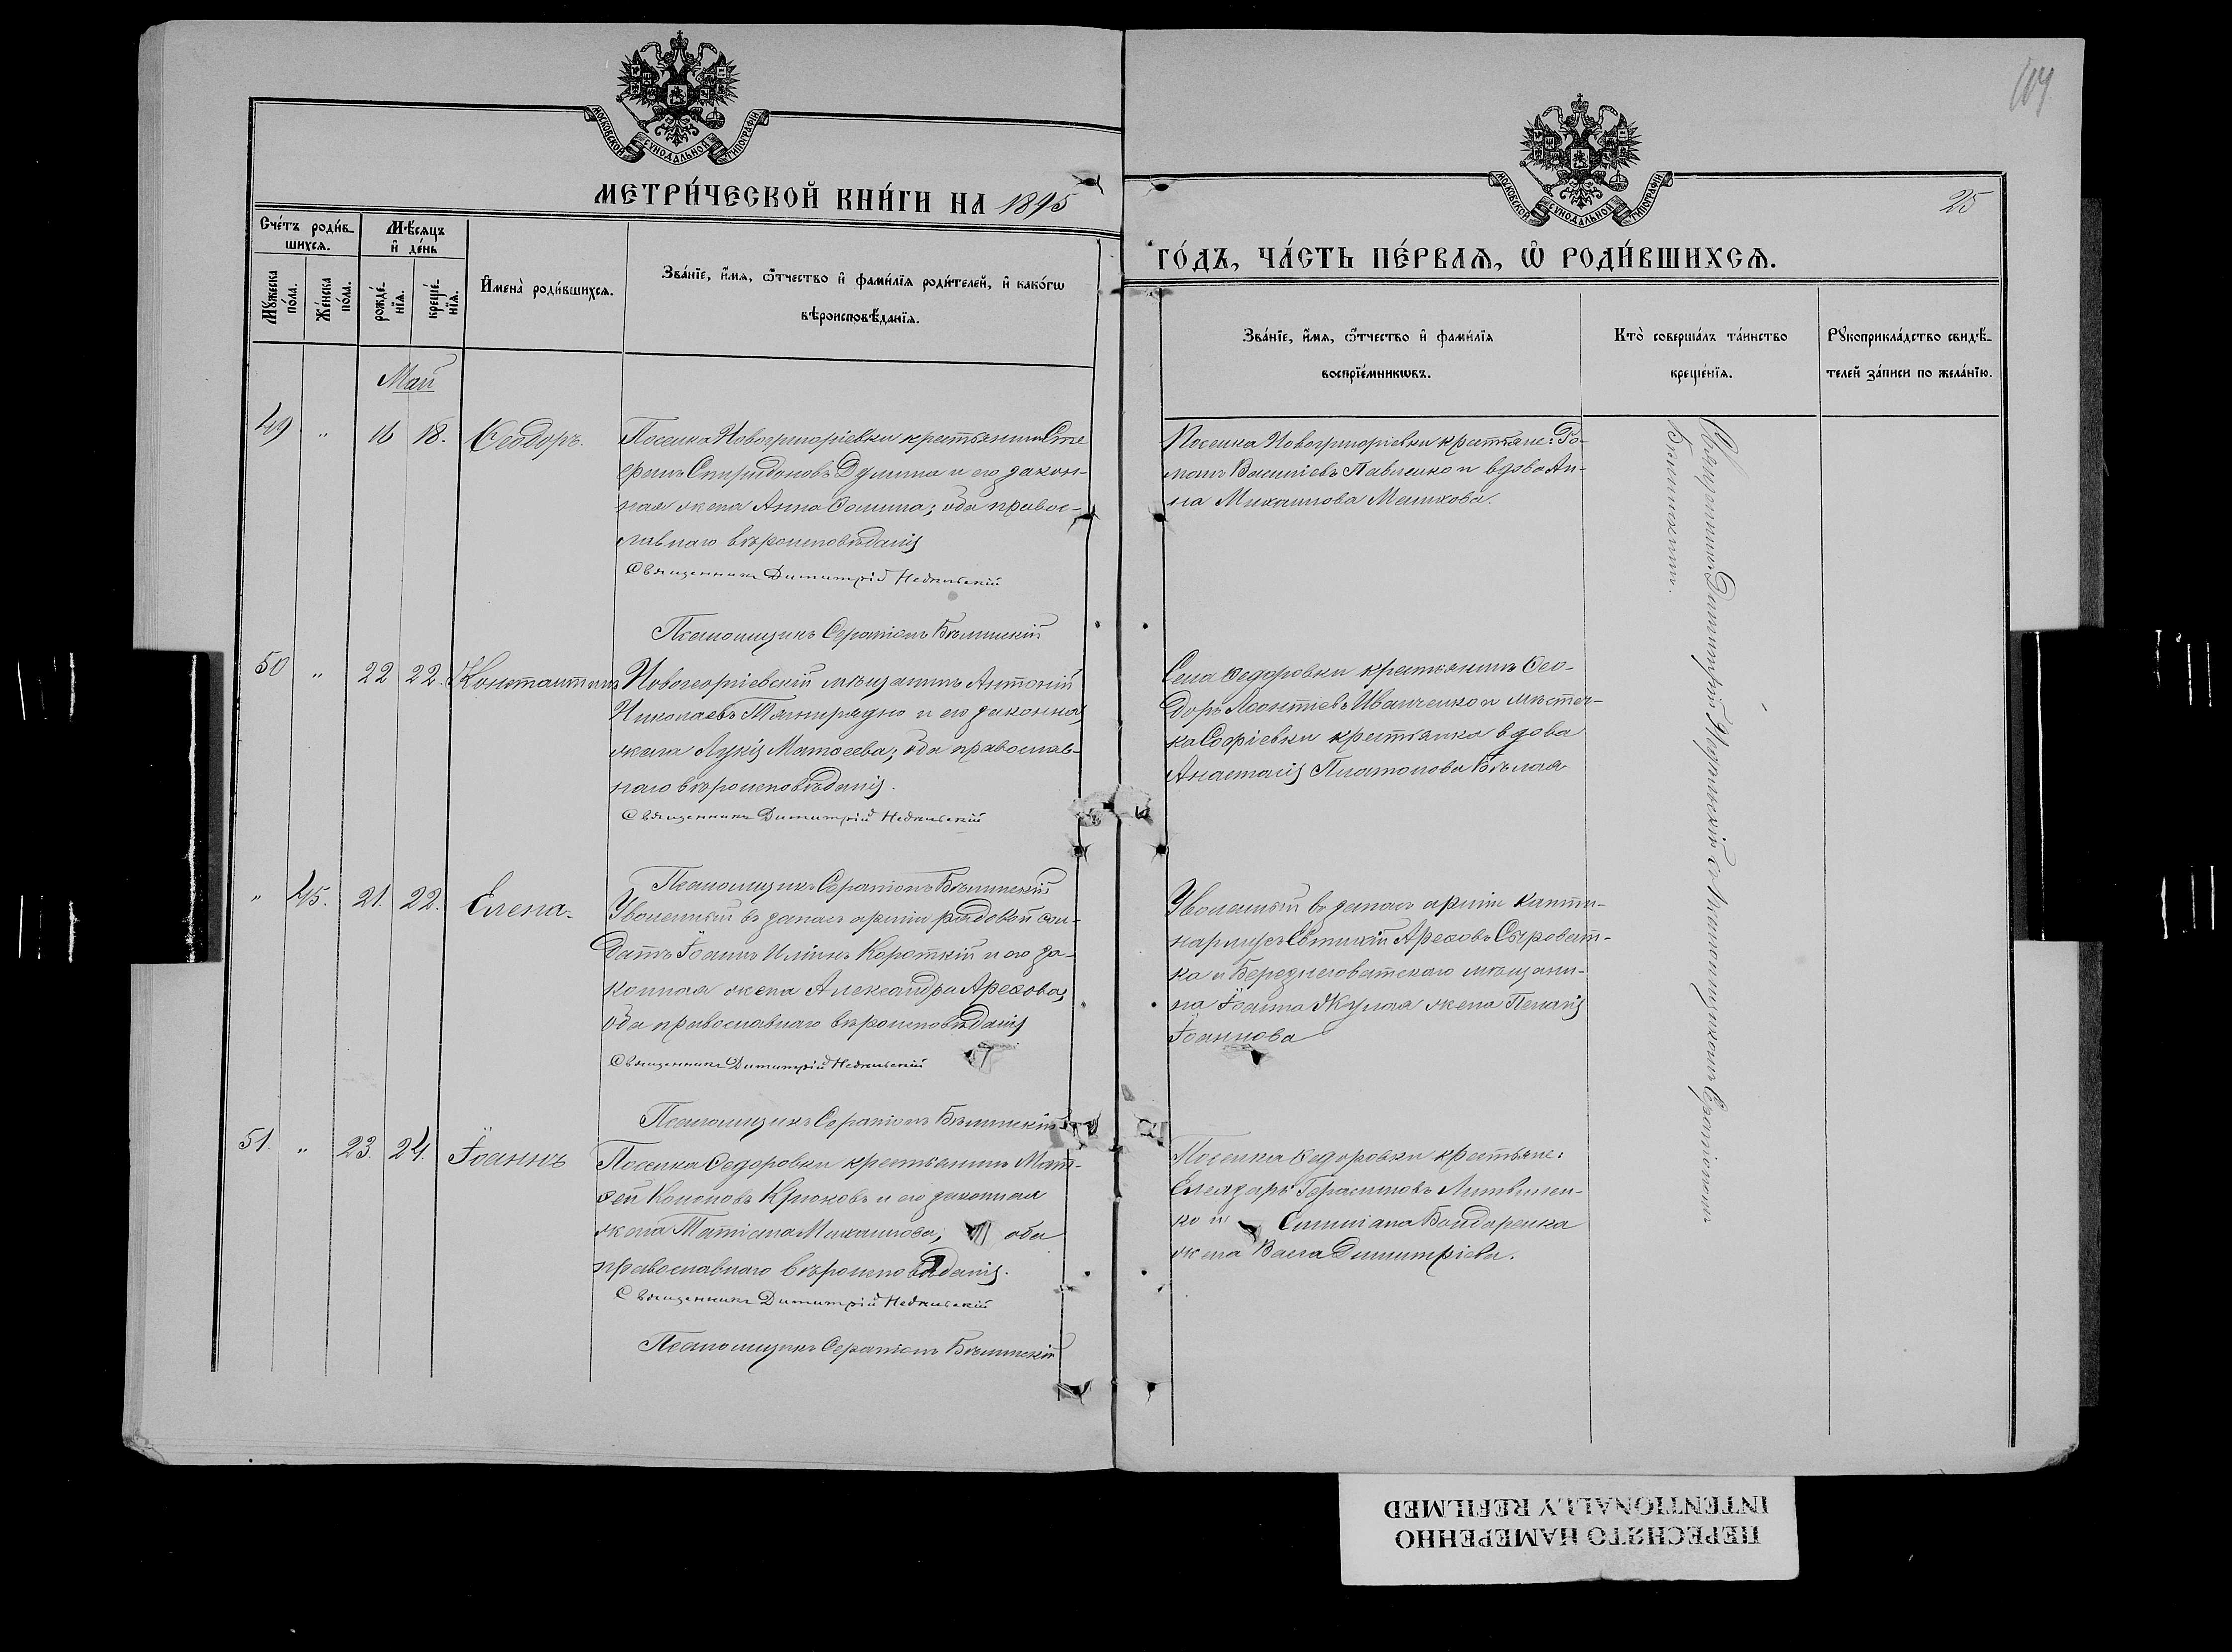 МОСКОВСКОЙ СѴНОДАЛЬНОЙ ТИПОГРАФІИ
МЕТРИ́ЧЕСКОЙ КНИ́ГИ НА 1895
Сче́тъ роди́в-
шихсѧ.
Мѣ́сѧцъ
и҆ де́нь
Мꙋ́жеска
по́ла.
Же́нска
по́ла.
рожде́-
нїѧ.
креще́-
нїѧ.
И҆мена̀ роди́вшихсѧ.
Зва́нїе, и҆́мѧ, ѻ҆́тчество и҆ фами́лїѧ роди́телей, и҆ како́гѡ
вѣроисповѣ́данїѧ.
Май
49 " 16 18. Ѳеодоръ.
Поселка Новогригоріевки крестьянинъ Сте-
фанъ Спиридоновъ Дулина и его закон-
ная жена Анна Ѳомина; оба правос-
лавнаго вѣроисповѣданія
Священникъ Димитрій Недѣльскій
Псаломщикъ Серапіонъ Бѣлинскій
50 " 22 22. Константинъ
Новогеоргіевскій мѣщанинъ Антоній
Николаевъ Тягнирядно и его законная
жена Лукія Матѳеева; оба православ-
наго вѣроисповѣданія.
Священникъ Димитрій Недѣльскій
Псаломщикъ Серапіонъ Бѣлинскій
" 45. 21. 22. Елена.
Уволенный въ запасъ арміи рядовой сол-
датъ Іоаннъ Ильинъ Короткій и его за-
конная жена Александра Арефова;
оба православнаго вѣроисповѣданія
Священникъ Димитрій Недѣльскій
Псаломщикъ Серапіонъ Бѣлинскій
51. " 23. 24. Іоаннъ
Поселка Ѳедоровки крестьянинъ Мат-
ѳей Кононовъ Крюковъ и его законная
жена Татіана Михаилова; оба
православнаго вѣроисповѣданія.
Священникъ Димитрій Недѣльскій
Псаломщикъ Серапіонъ Бѣлинскій
МОСКОВСКОЙ СѴНОДАЛЬНОЙ ТИПОГРАФІИ
25
ГО́ДЪ, ЧА́СТЬ ПЕ́РВАѦ, Ѽ РОДИ́ВШИХСѦ.
Зва́нїе, и҆́мѧ, ѻ҆́тчество и҆ фами́лїѧ
воспрїе́мникѡвъ.
Кто̀ соверша́лъ та́инство
креще́нїѧ.
Рꙋкоприкла́дство свидѣ́-
телей за́писи по жела́нїю.
Поселка Новогригоріевки крестьяне: Ро-
манъ Василіевъ Павленко и вдова Ан-
на Михаилова Машкова.
Села Ѳедоровки крестьянинъ Ѳео-
доръ Леонтіевъ Иванченко и мѣстеч-
ка Софіевки крестьянка вдова
Анастасія Платонова Бѣлая
Уволенный въ запасъ арміи
Арефовъ Сыроват-
ка и Березнеговатскаго мѣщани-
на Іоанна Жулая жена Пелагія
Іоаннова
Поселка Ѳедоровки крестьяне:
Елеазаръ Герасимовъ Литвинен-
ко и Симиана Бондаренка
жена Васса Димитріева.
Священникъ Димитрій Недѣльскій съ псаломщикомъ Серапіономъ
Бѣлинскимъ.
ПЕРЕСНЯТО НАМЕРЕННО
INTENTIONALLY REFILMED